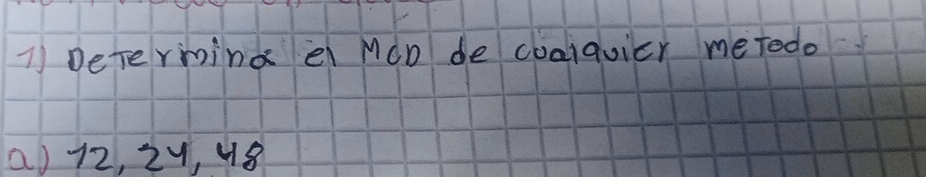 1) Determina el MCD de cualquier metodo
a) 12, 24, 48